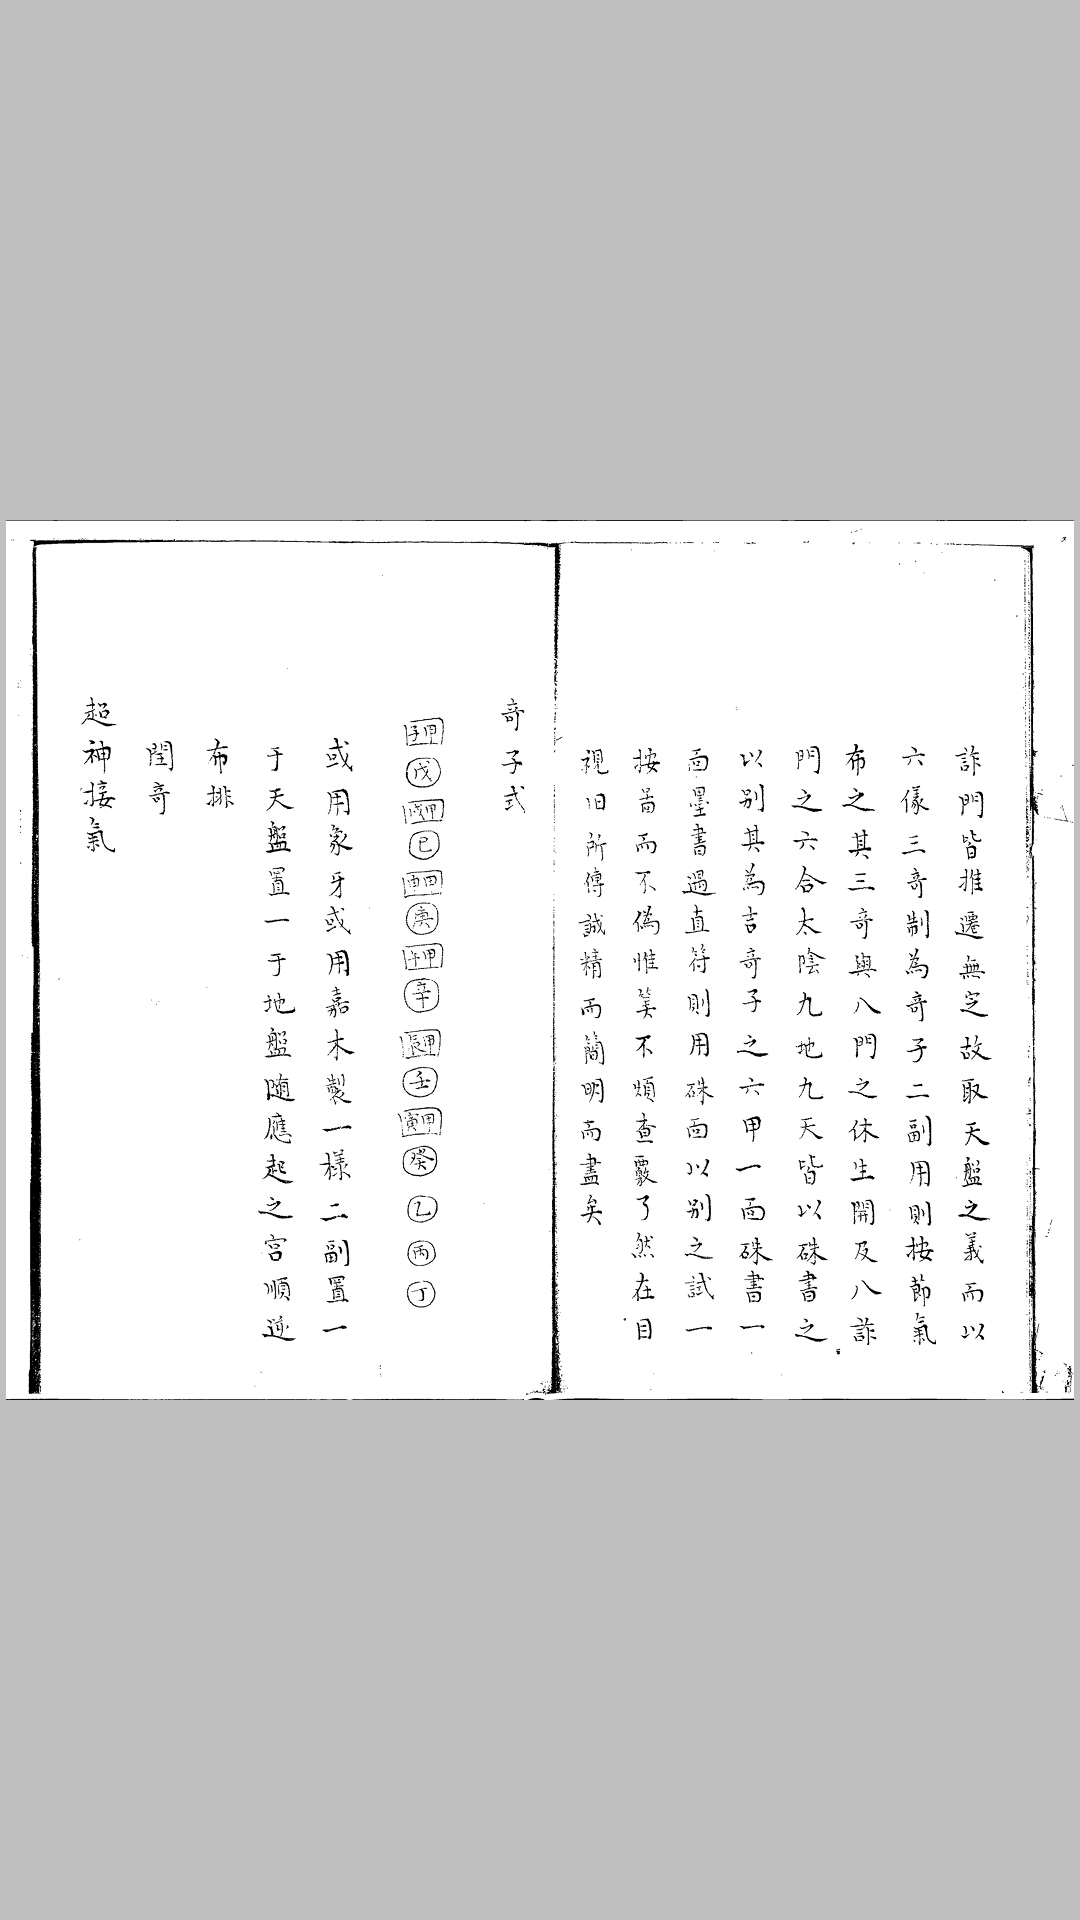 詐門皆推遷無定故取天盤之義而以
六儀三奇制為奇子二副用則按節氣
布之其三奇與八門之休生開及八詐
門之六合太陰九地九天皆以硃書之
以别其為吉奇子之六甲一面硃書一
面墨書遇直符則用硃面以别之試一
按啚而不偽惟筭不煩查覈了然在目
視旧所傳誠精而簡明而盡矣
奇子式
甲子 戊 甲戌 己 甲申 庚 甲午 辛 甲辰 壬 甲寅 癸 乙 丙 丁
或用象牙或用嘉木製一樣二副置一
于天盤置一于地盤随應起之宮順逆
布排
閏奇
超神接氣